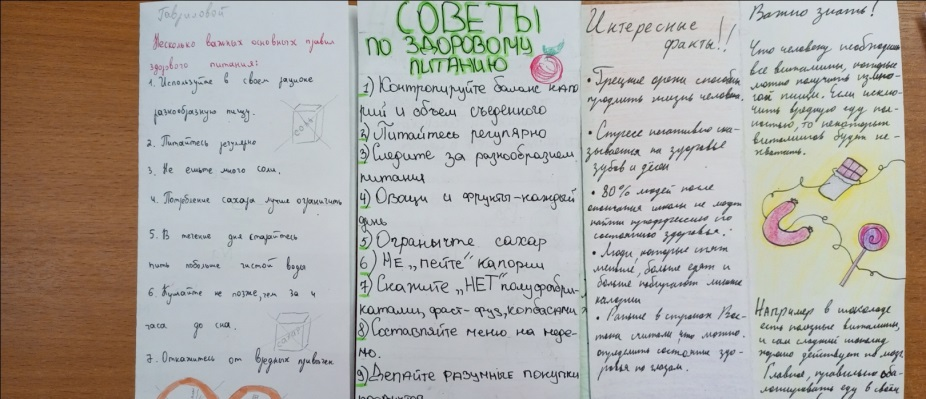 Гавриловой
Несколько важных основных правил
здорового питания:
1. Используйте в своем рационе
разнообразную пищу.
соль
2. Питайтесь регулярно
3. Не ешьте много соли.
4. Потребление сахара лучше ограничить
5. В течение дня старайтесь
пить побольше чистой воды
6. Кушайте не позже, чем за 4
часа до сна.
сахар
7. Откажитесь от вредных привычек
СОВЕТЫ
ПО ЗДОРОВОМУ
ПИТАНИЮ
1) Контролируйте баланс кало
рий и объем съеденного
2) Питайтесь регулярно
3) Следите за разнообразием
питания
4) Овощи и фрукты-каждый
день
5) Ограничьте сахар
6) НЕ „пейте" калории
7) Скажите „НЕТ" полуфабри-
катами, фаст-фуд, колбасами
8) Составляйте меню на неде-
лю.
9) Делайте разумные покупки
Интересные
факты!!
• Грецкие орехи способны
продлить жизнь человека.
• Стресс негативно ска-
зывается на здоровье
зубов и дёсен
• 80% людей после
окончания школы не могут
найти профессию по
состоянию здоровья.
• Люди, которые спят
меньше, больше едят и
больше набирают лишние
калории
• Раньше в странах Вос-
тока считали, что можно
определить состояние здо-
ровья по глазам.
Важно знать!
Что человеку необходимы
все витамины, которые
можно получить из мно-
гой пищи. Если исклю-
чить вредную еду пол-
ностью, то некоторых
витаминов будет не-
хватать.
Например в шоколаде
есть полезные витамины,
и сам сладкий шоколад
действует на мозг.
Главное, правильно сба-
лансировать еду в своём